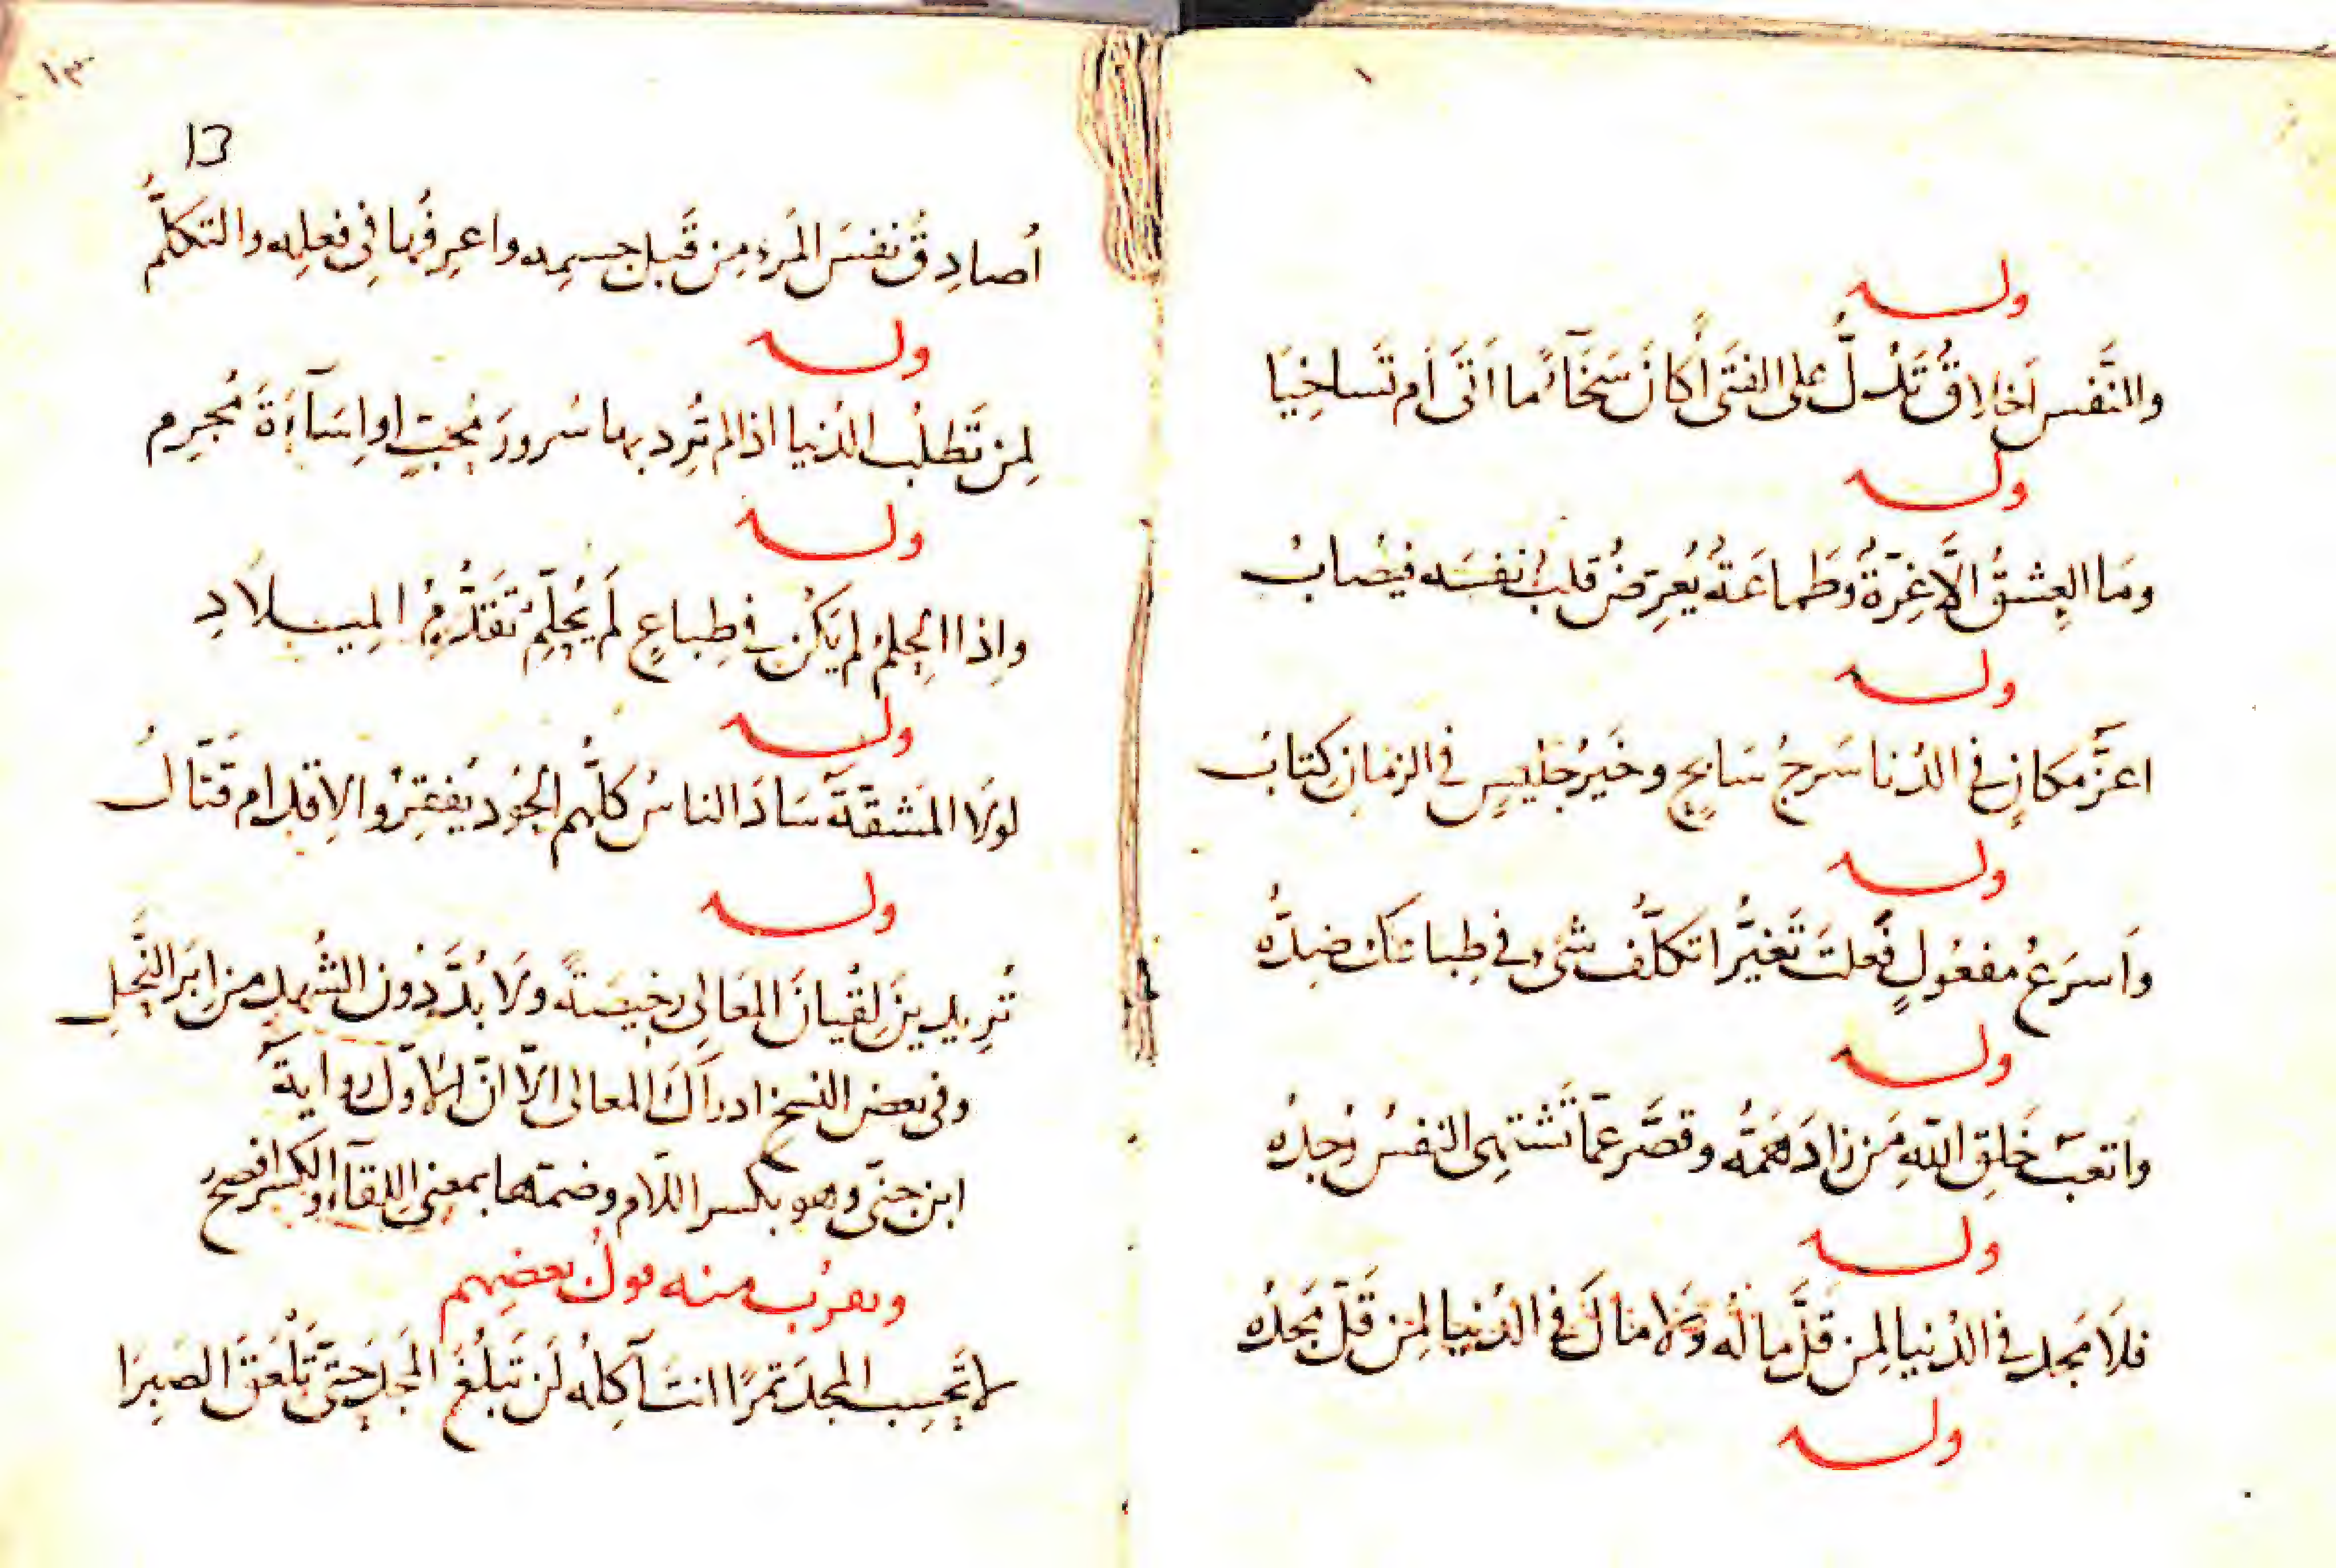 ١
وله
وللنَّفس اَخلاقٌ تَدُلُّ على الفتَى أكانَ سَخَآءً ما اَتَى اَم تَساخِيَا
وله
ومَا العِشقُ الّا غِرّةٌ وطَماعَةٌ يُعرِّضُ قلبٌ نفسَه فيُصابُ
وله
اعزّ مكانٍ في الدُنا سَرجُ سَابحٍ وخَيرُ جَليسٍ في الزمان كتابُ
وله
واَسرَعُ مفعُولٍ فَعلتَ تَغيُّرا تكلّفُ شئ في طِباعك ضِدُّه
وله
واَتعَبُ خَلقِ اللّهِ مَن زادَ هَمُّه وقصَّر عمّا تَشتَهِى النفسُ وُجدُه
وله
فلَا مَجد في الدُنيا لِمن قلَّ مالُه وَلا مالَ في الدُنيا لِمن قَلّ مَجدُه
وله
١٣
13
اُصادِقُ نفسَ المَرءِ مِن قَبل جسمِه واعرِفُها في فعلِه والتكلُّمِ
وله
لِمن تَطلُب الدُنيا اذا لم تُرِد بها سُرورَ مُحِبٍّ او اِسَآءَةَ مُجرِم
وله
واِذا الحِلمُ لم يَكُن في طِباعٍ لَم يُحلِّم تَقَدُّمُ المِيلادِ
وله
لولَا المَشقّةُ سَادَ الناسُ كلُّهم الجُود يُفقِرُ والاِقدام قَتّالُ
وله
تُرِيدينَ لِقيانَ المَعَالى رخيصَةً ولَا بُدَّ دُون الشُهدِ من اِبَر النَّحلِ
وفى بعض النسخ ادراكَ المعالى الّا انّ الاوّل رواية
ابن جنّى وهو بكسر اللّام وضمّها بمعنى اللِقآء والكسر افصح
ويقرُب منه قولُ بعضِهم
لا تَحسِب المجدَ تمرًا انتَ آكِلُه لَن تَبلُغَ المَجدَ حتّى تَلْعَقَ الصَبِرَا